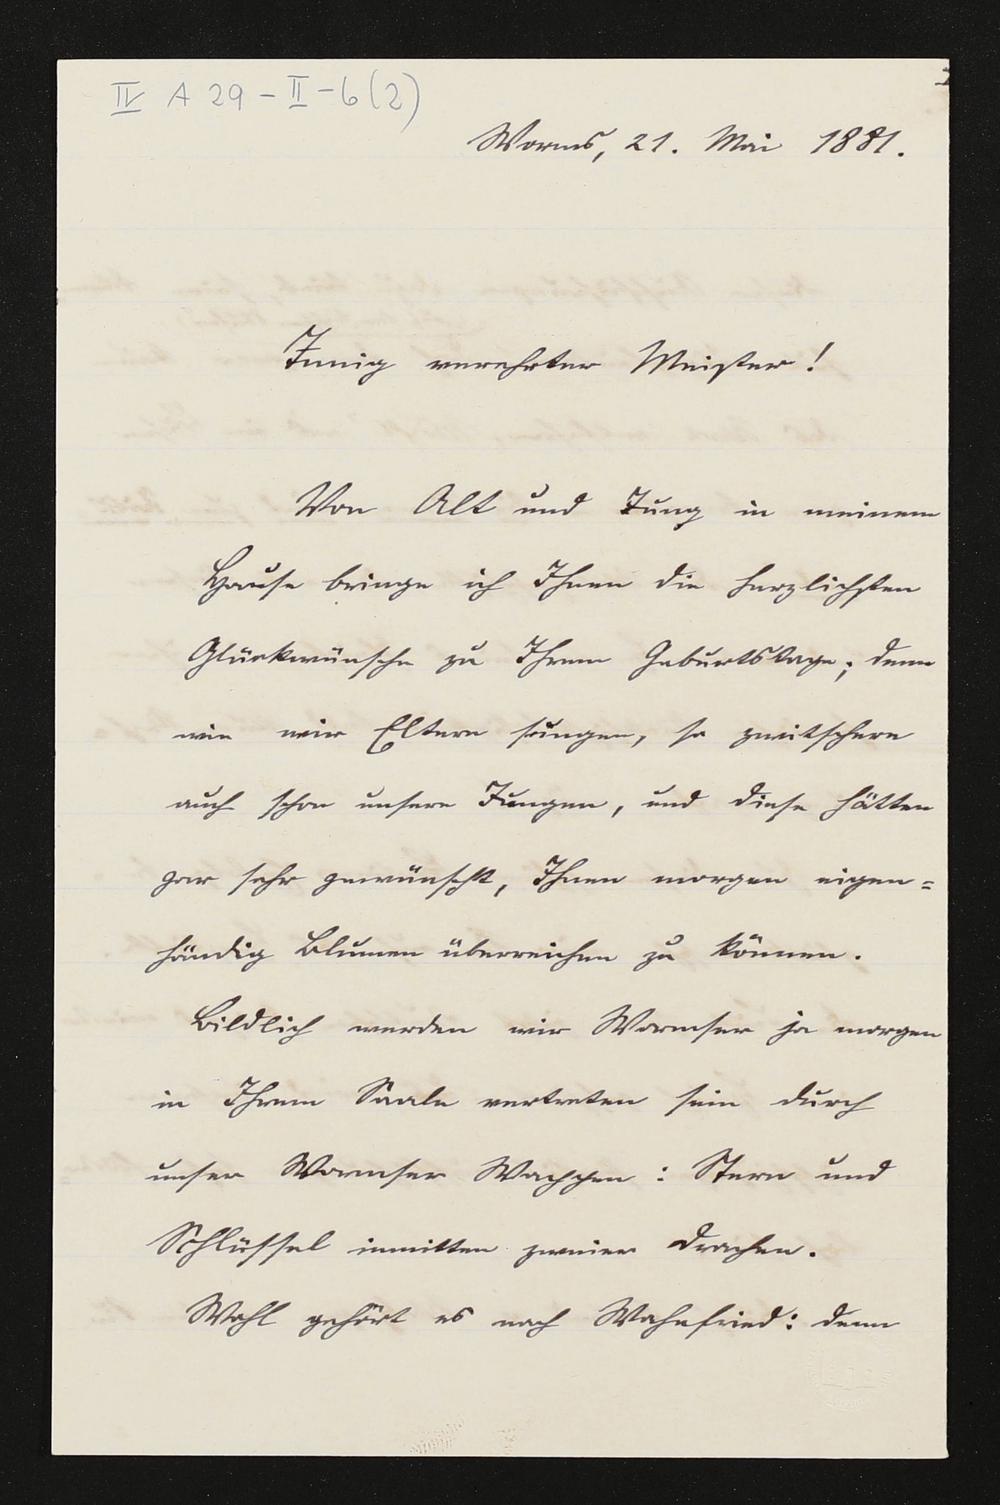 IV A 29 - II - 6 (2)
Worms, 21. Mai 1881.
Innig verehrter Meister!
Von Alt und Jung in meinem
Hause bringe ich Ihnen die herzlichsten
Glückwünsche zu Ihrem Geburtstage; denn
wie wir Eltern sungen, so zwitschern
auch schon unsere Jungen, und diese hätten
gar sehr gewünscht, Ihnen morgen eigen=
händig Blumen überreichen zu können.
Bildlich werden wir Wormser ja morgen
in Ihrem Saale vertreten sein durch
unser Wormser Wappen: Stern und
Schlüssel inmitten zweier Drachen.
Wohl gehört es nach Wahnfried: denn